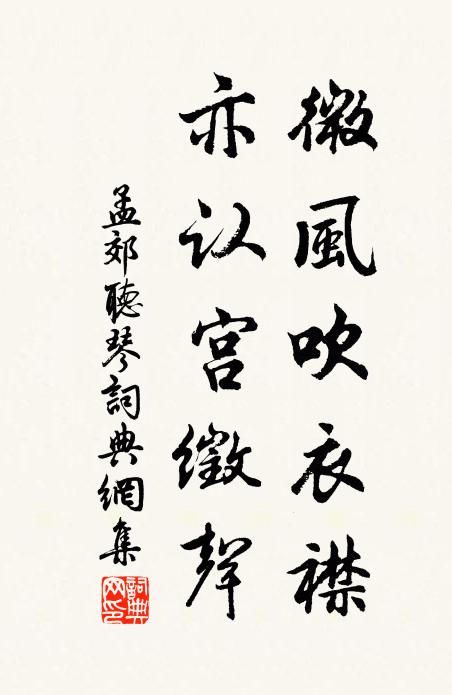 微風吹衣襟
亦认宫徵聲
孟郊聽琴詞典網集
詞典网印